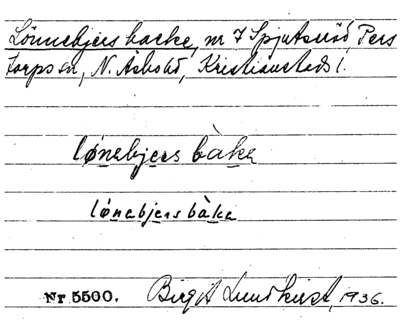 Lönnebjers backe, nr 7 Spjutsröd, Pers
torps sn, N. Åsbohd, Kristianstads l.
lónebjers bàka
lónebjers bàka
Nr 5500. Birgit Lundkvist, 1936.